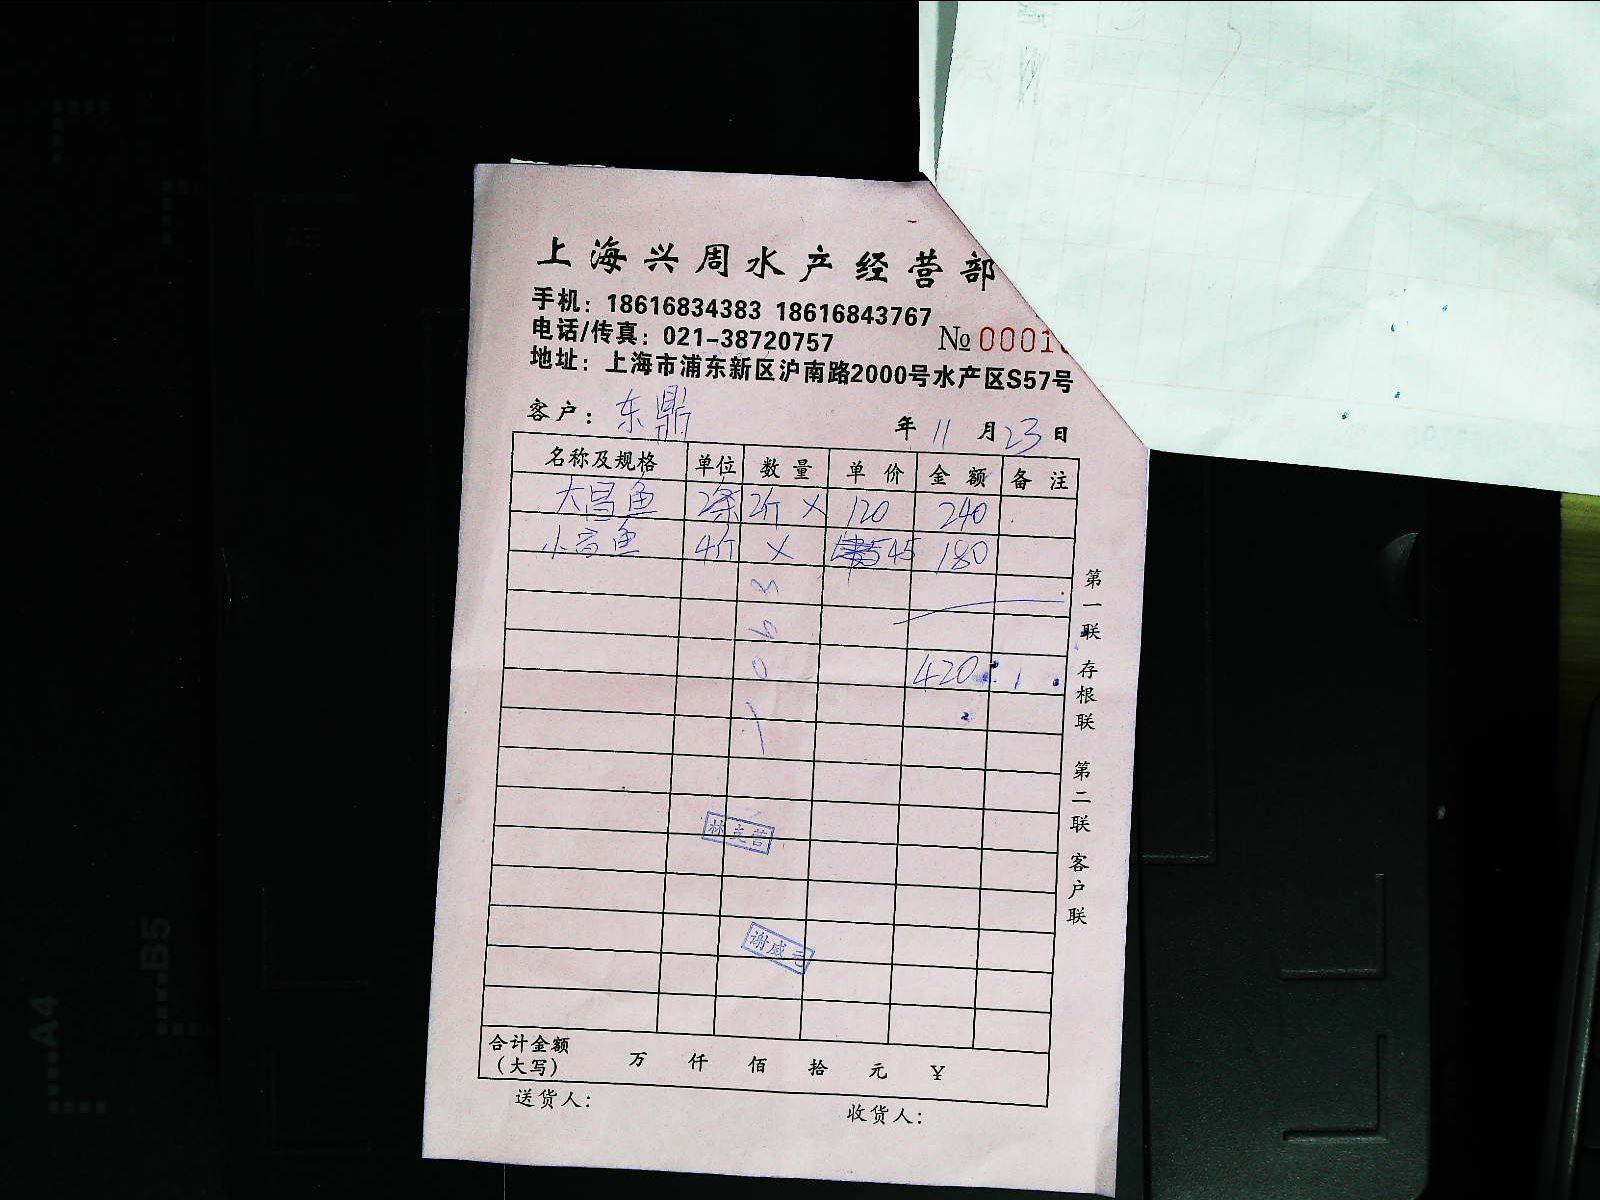 上海兴周水产经营部
手机：18616834383 18616843767
电话/传真：021-38720757
№ 0001
地址：上海市浦东新区沪南路2000号水产区S57号
客户：东鼎 年 11 月 23 日
名称及规格 单位 数量 单价 金额 备注
大昌鱼 2条 2斤 × 120 240
小昌鱼 4斤 × 45 180
420
谢威
第一联 存根联 第二联 客户联
合计金额（大写） 万 仟 佰 拾 元 ¥
送货人： 收货人：